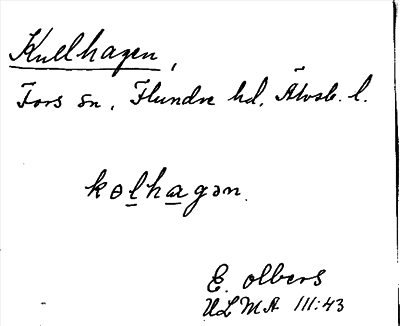 Kullhagen,
Fors sn, Flundre hd, Älvsb. l.
kɵlhagən.
E. Olbers
ULMA 111:43